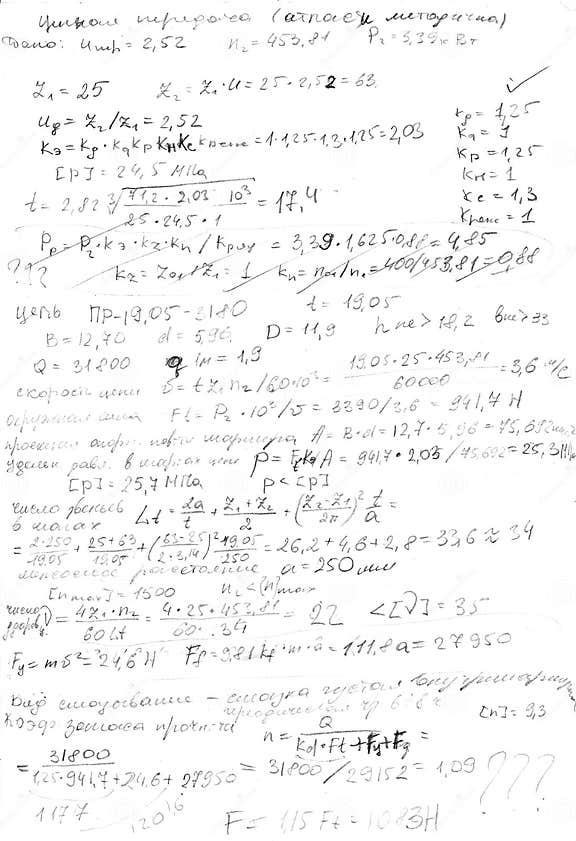 цепная передача (атласы методичка)
Дано: Uпр = 2,52 n₂ = 453,81 P₂ = 3,39 кВт
Z₁ = 25 Z₂ = Z₁·U = 25·2,52 = 63
Uф = Z₂/Z₁ = 2,52
Kэ = Kд·Kа Kр Kн Kс Kреж = 1·1,25·1,3·1,25 = 2,03
Kд = 1,25
Kа = 1
Kр = 1,25
Kн = 1
Kс = 1,3
Kреж = 1
[p] = 24,5 МПа
t = 2,82 ∛ 71,2 · 2,03 10³ / 25·24,5·1 = 17,4
Pр = P₂·Kэ·Kz·Kn / Kряд = 3,39·1,625·0,88 = 4,85
??? Kz = Z₀₁/Z₁ = 1 Kn = n₀₁/n₁ = 400/453,81 = 0,88
цепь ПР-19,05-3180 t = 19,05
B = 12,70 d = 5,96 D = 11,9 h не > 18,2 b не > 33
Q = 31800 q 1м = 1,9
скорость цепи υ = t Z₁ n₂/60·10³ = 19,05·25·453,81 / 60000 = 3,6 м/с
окружная сила Ft = P₂·10³/υ = 3390/3,6 = 941,7 Н
проекция опорн. поверх шарнира A = B·d = 12,7·5,96 = 75,692
удельн давл. в шарнах цепи p = Ft Kэ/A = 941,7·2,03/75,692 = 25,3 Н
[p] = 25,7 МПа p < [p]
число звеньев
в шагах Lt = 2a/t + Z₁+Z₂/2 + (Z₂-Z₁/2π)² t/a =
= 2·250/19,05 + 25+63/19,05 + (63-25/2·3,14)² 19,05/250 = 26,2 + 4,6 + 2,8 = 33,6 ≈ 34
межосевое расстояние a = 250 мм
[n max] = 1500 n₂ < [n] max
число
ударов ν = 4Z₁·n₂/60 Lt = 4·25·453,81/60·34 = 22 < [ν] = 35
Fυ = mυ² = 24,6 Н Ff = 9,81 kf·m·a = 1.11,8a = 27950
Вид смазывание - смазка густая внутришарнирная
периодическая чр 6÷8 ч
Коэф запаса прочн-ти n = Q / Kд·Ft + Fυ + Ff = [n] = 9,3
= 31800 / 1,25·941,7 + 24,6 + 27950 = 31800/29152 = 1,09 ???
1177
F = 1,15 Ft = 1083Н